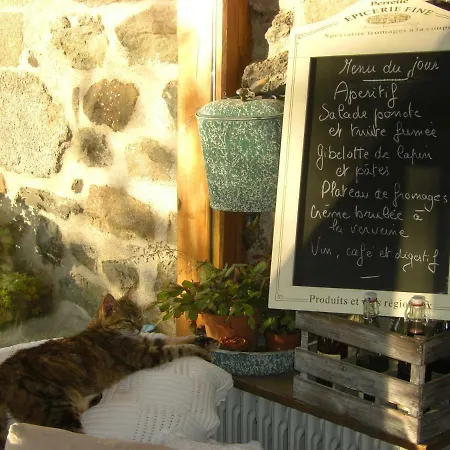 Perrette
EPICERIE FINE
Spécialité fromages à la coupe
Menu du jour
Aperitif
Salade poncte
et truite fumée
Gibelotte de lapin
et pâtes
Plateau de fromages
Crème brulée à
la verveine
Vin, café et digestif
Produits et vins régionaux